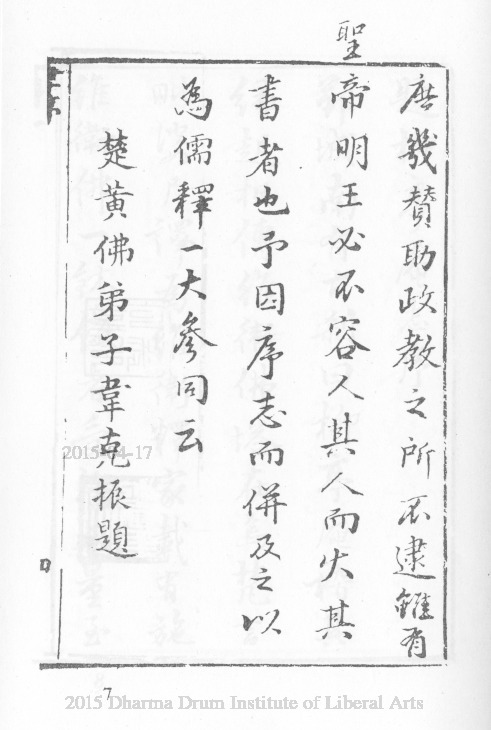 庶幾贊助政教之所不逮雖有
聖帝明王必不容人其人而火其
書者也予因序志而併及之以
為儒釋一大參同云
楚黃佛弟子韋克振題
2015-04-17
7
2015 Dharma Drum Institute of Liberal Arts